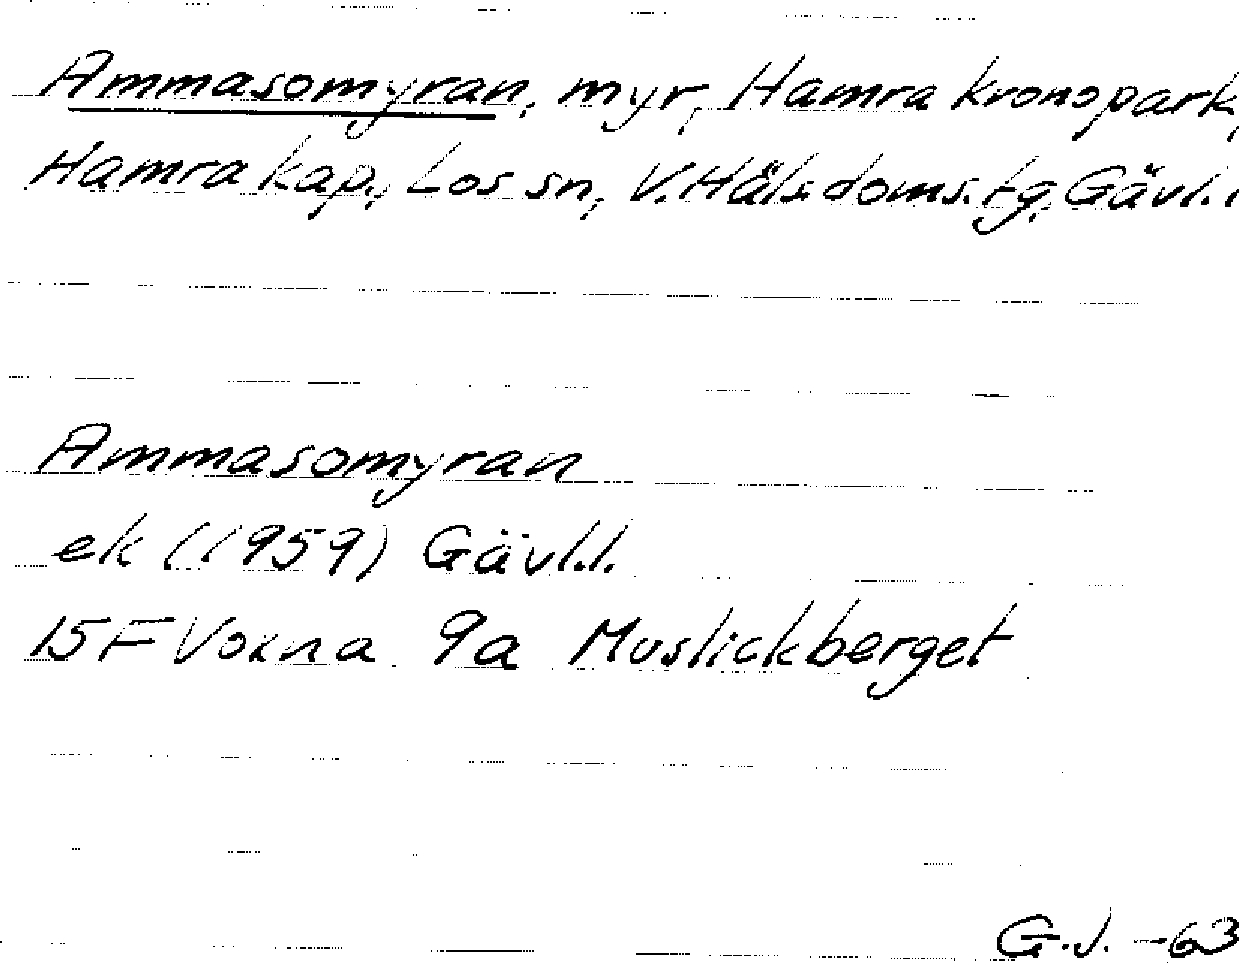 Ammasomyran, myr, Hamra kronopark,
Hamra kap., Los sn, V. Häls. doms. tg, Gävl. l
Ammasomyran
ek (1959) Gävl.l.
15F Voxna 9a Muslickberget
G.J. -63